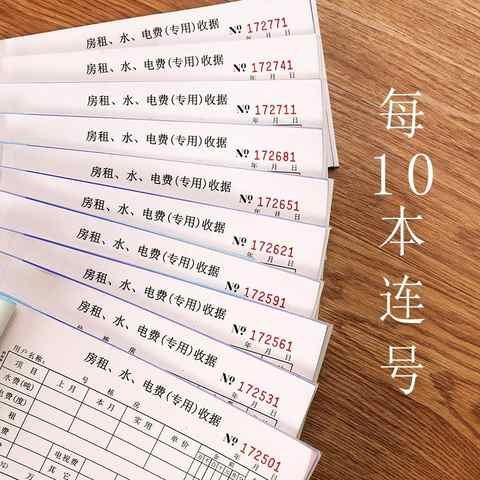 房租、水、电费(专用)收据 № 172771
年 月 日
房租、水、电费(专用)收据 № 172741
年 月 日
房租、水、电费(专用)收据 № 172711
年 月 日
房租、水、电费(专用)收据 № 172681
年 月 日
房租、水、电费(专用)收据 № 172651
年 月 日
房租、水、电费(专用)收据 № 172621
年 月 日
房租、水、电费(专用)收据 № 172591
年 月 日
房租、水、电费(专用)收据 № 172561
年 月 日
房租、水、电费(专用)收据 № 172531
年 月 日
房租、水、电费(专用)收据 № 172501
年 月 日
用户名称: 号 栋 座
项目 上月 本月 实用 单价 金额
水费(吨)
电费(度)
租
费 电视费
万 其它
每
10
本
连
号